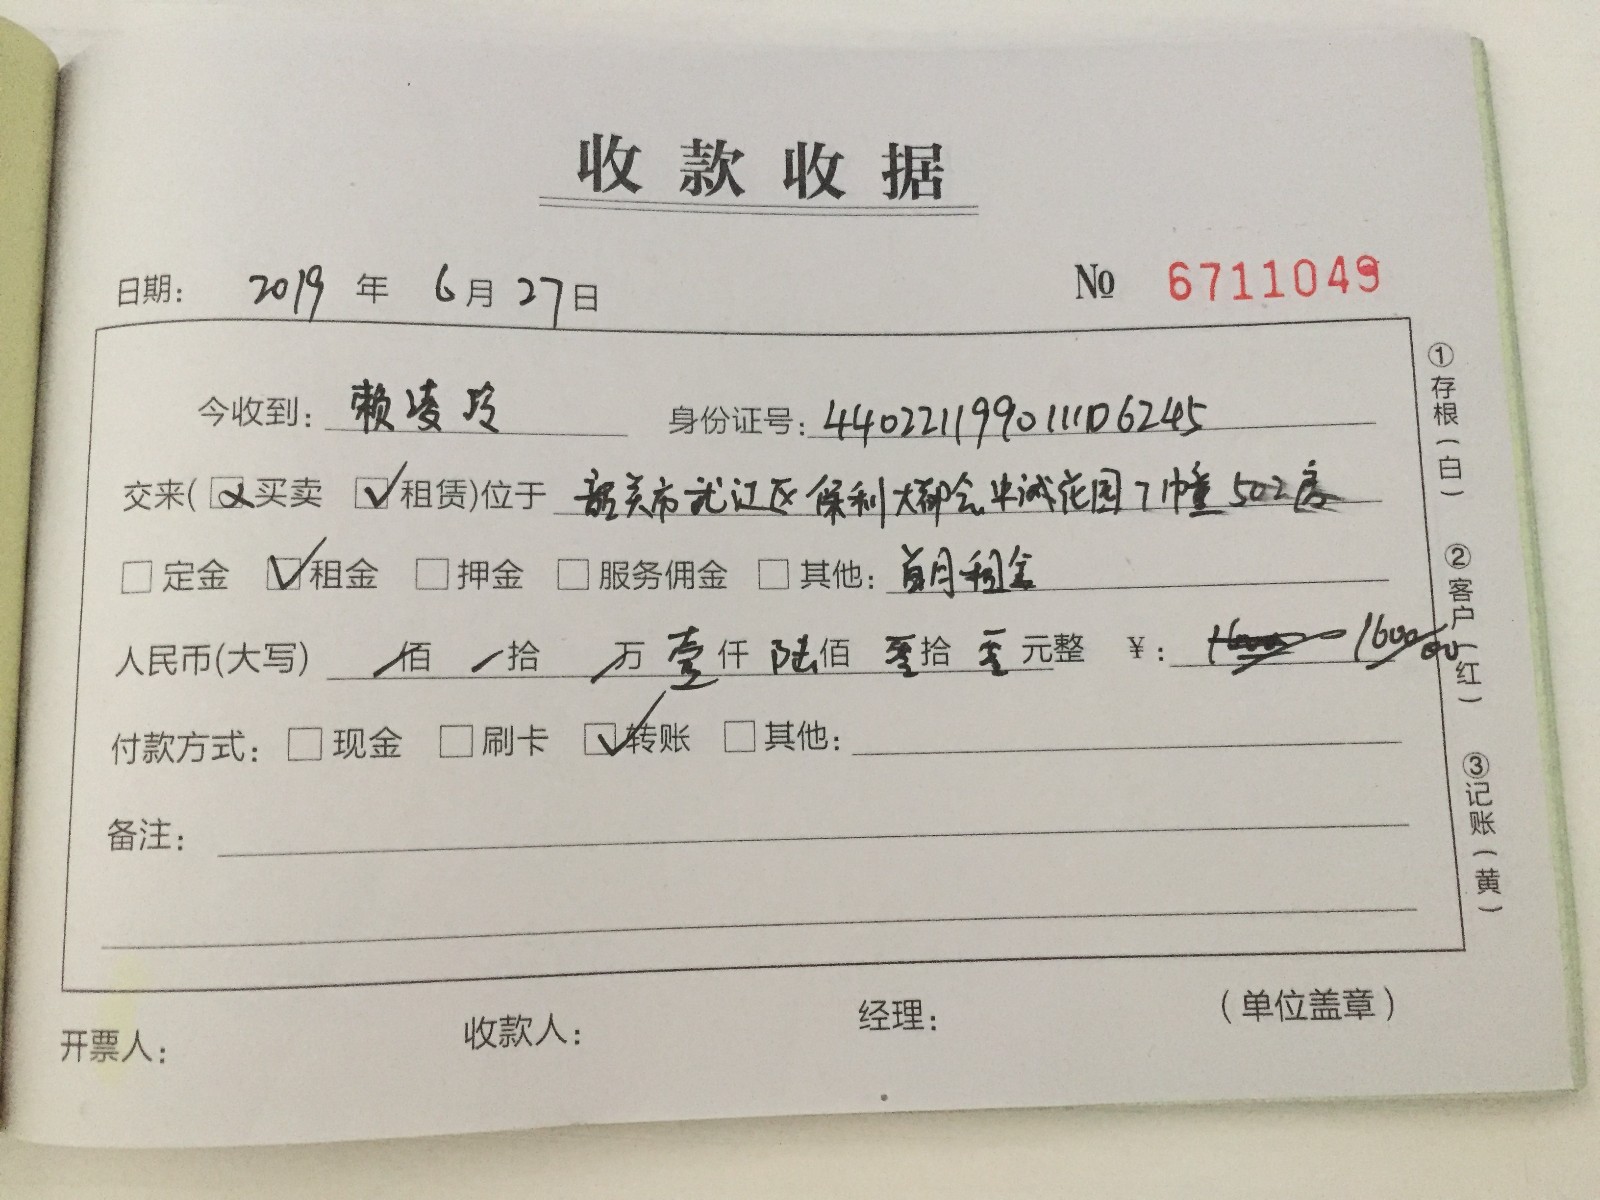 收款收据
日期: 2019 年 6 月 27 日 No 6711049
今收到: 赖凌玲 身份证号:
交来( 买卖 租赁)位于 韶关市武江区保利大都会 花园7幢502房
定金 租金 押金 服务佣金 其他: 首月租金
人民币(大写) 佰 拾 万 壹仟 陆佰 零拾 零元整 ¥: 1600
付款方式: 现金 刷卡 转账 其他:
备注:
开票人: 收款人: 经理: (单位盖章)
①存根(白)
②客户(红)
③记账(黄)